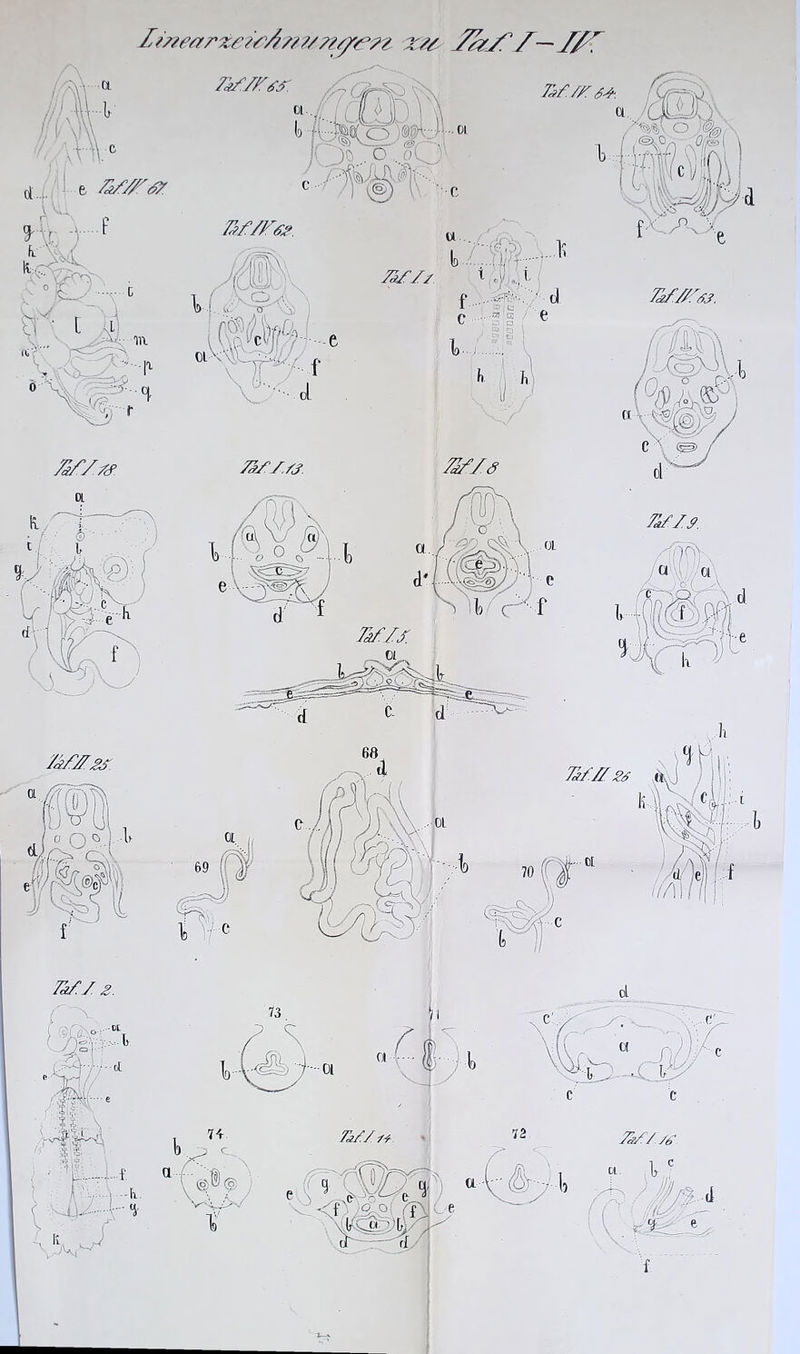 Linearzeichnungen zu Taf. I – IV.
Taf. IV. 65.
Taf. IV. 64.
a
b
c
a
b
c
a
c
a
b
c
d
e
f
d
e
Taf. IV. 67.
g
f
h
k
i
l
l
m
n
p
o
q
r
Taf. IV. 62.
b
c
a
e
f
d
Taf. I. 1.
a
b
k
i
i
f
d
c
e
b
h
h
Taf. IV. 63.
b
a
c
d
Taf. I. 18.
a
k
i
b
g
c
h
e
d
f
Taf. I. 13.
a
a
b
b
c
e
d
f
Taf. I. 8
a
a
e
d'
e
b
f
Taf. I. 9.
a
a
c
d
b
f
g
e
h
Taf. I. 5.
a
b
b
e
e
d
c
d
Taf. II. 25.
a
b
d
e
c
f
69
a
b
c
68
d
c
a
b
70
a
b
c
Taf. II. 26
h
g
a
k
c
i
b
d
e
f
Taf. I. 2.
a
b
d
e
e
f
h
g
k
73.
b
a
71
a
b
d
c'
c'
a
c
b
b
c
c
74.
b
a
b
Taf. I. 14.
g
g
e
e
c
e
f
f
b
a
b
d
d
72
a
b
Taf. I. 16
a
b
c
d
g
e
f